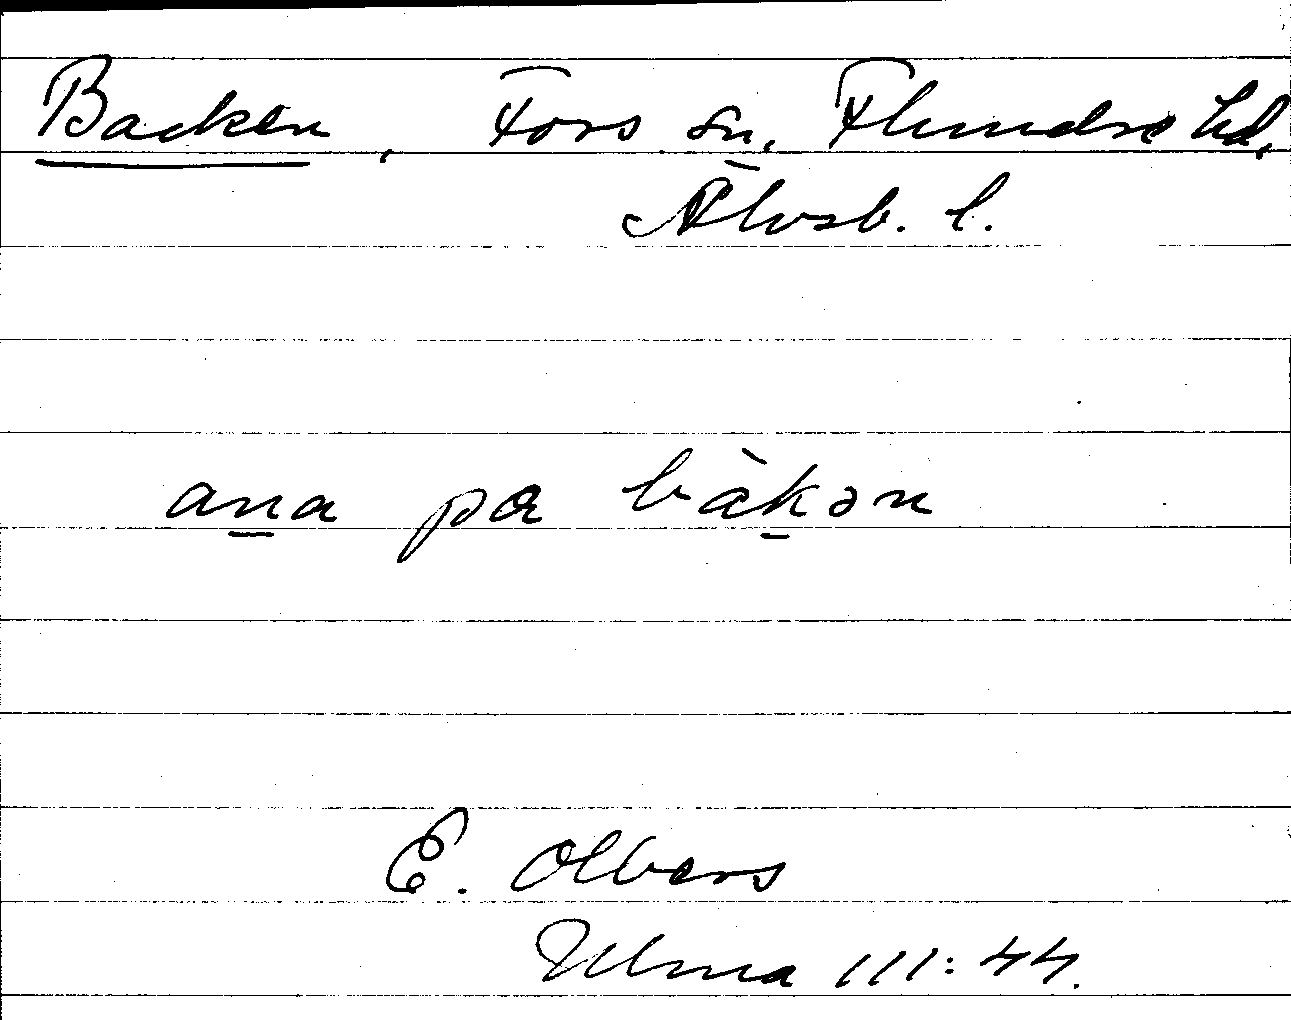 Backen, Fors sn, Flundre hd,
Älvsb. l.
an̲a pa bàk̲ən
E. Olbers
Ulma 111:44.